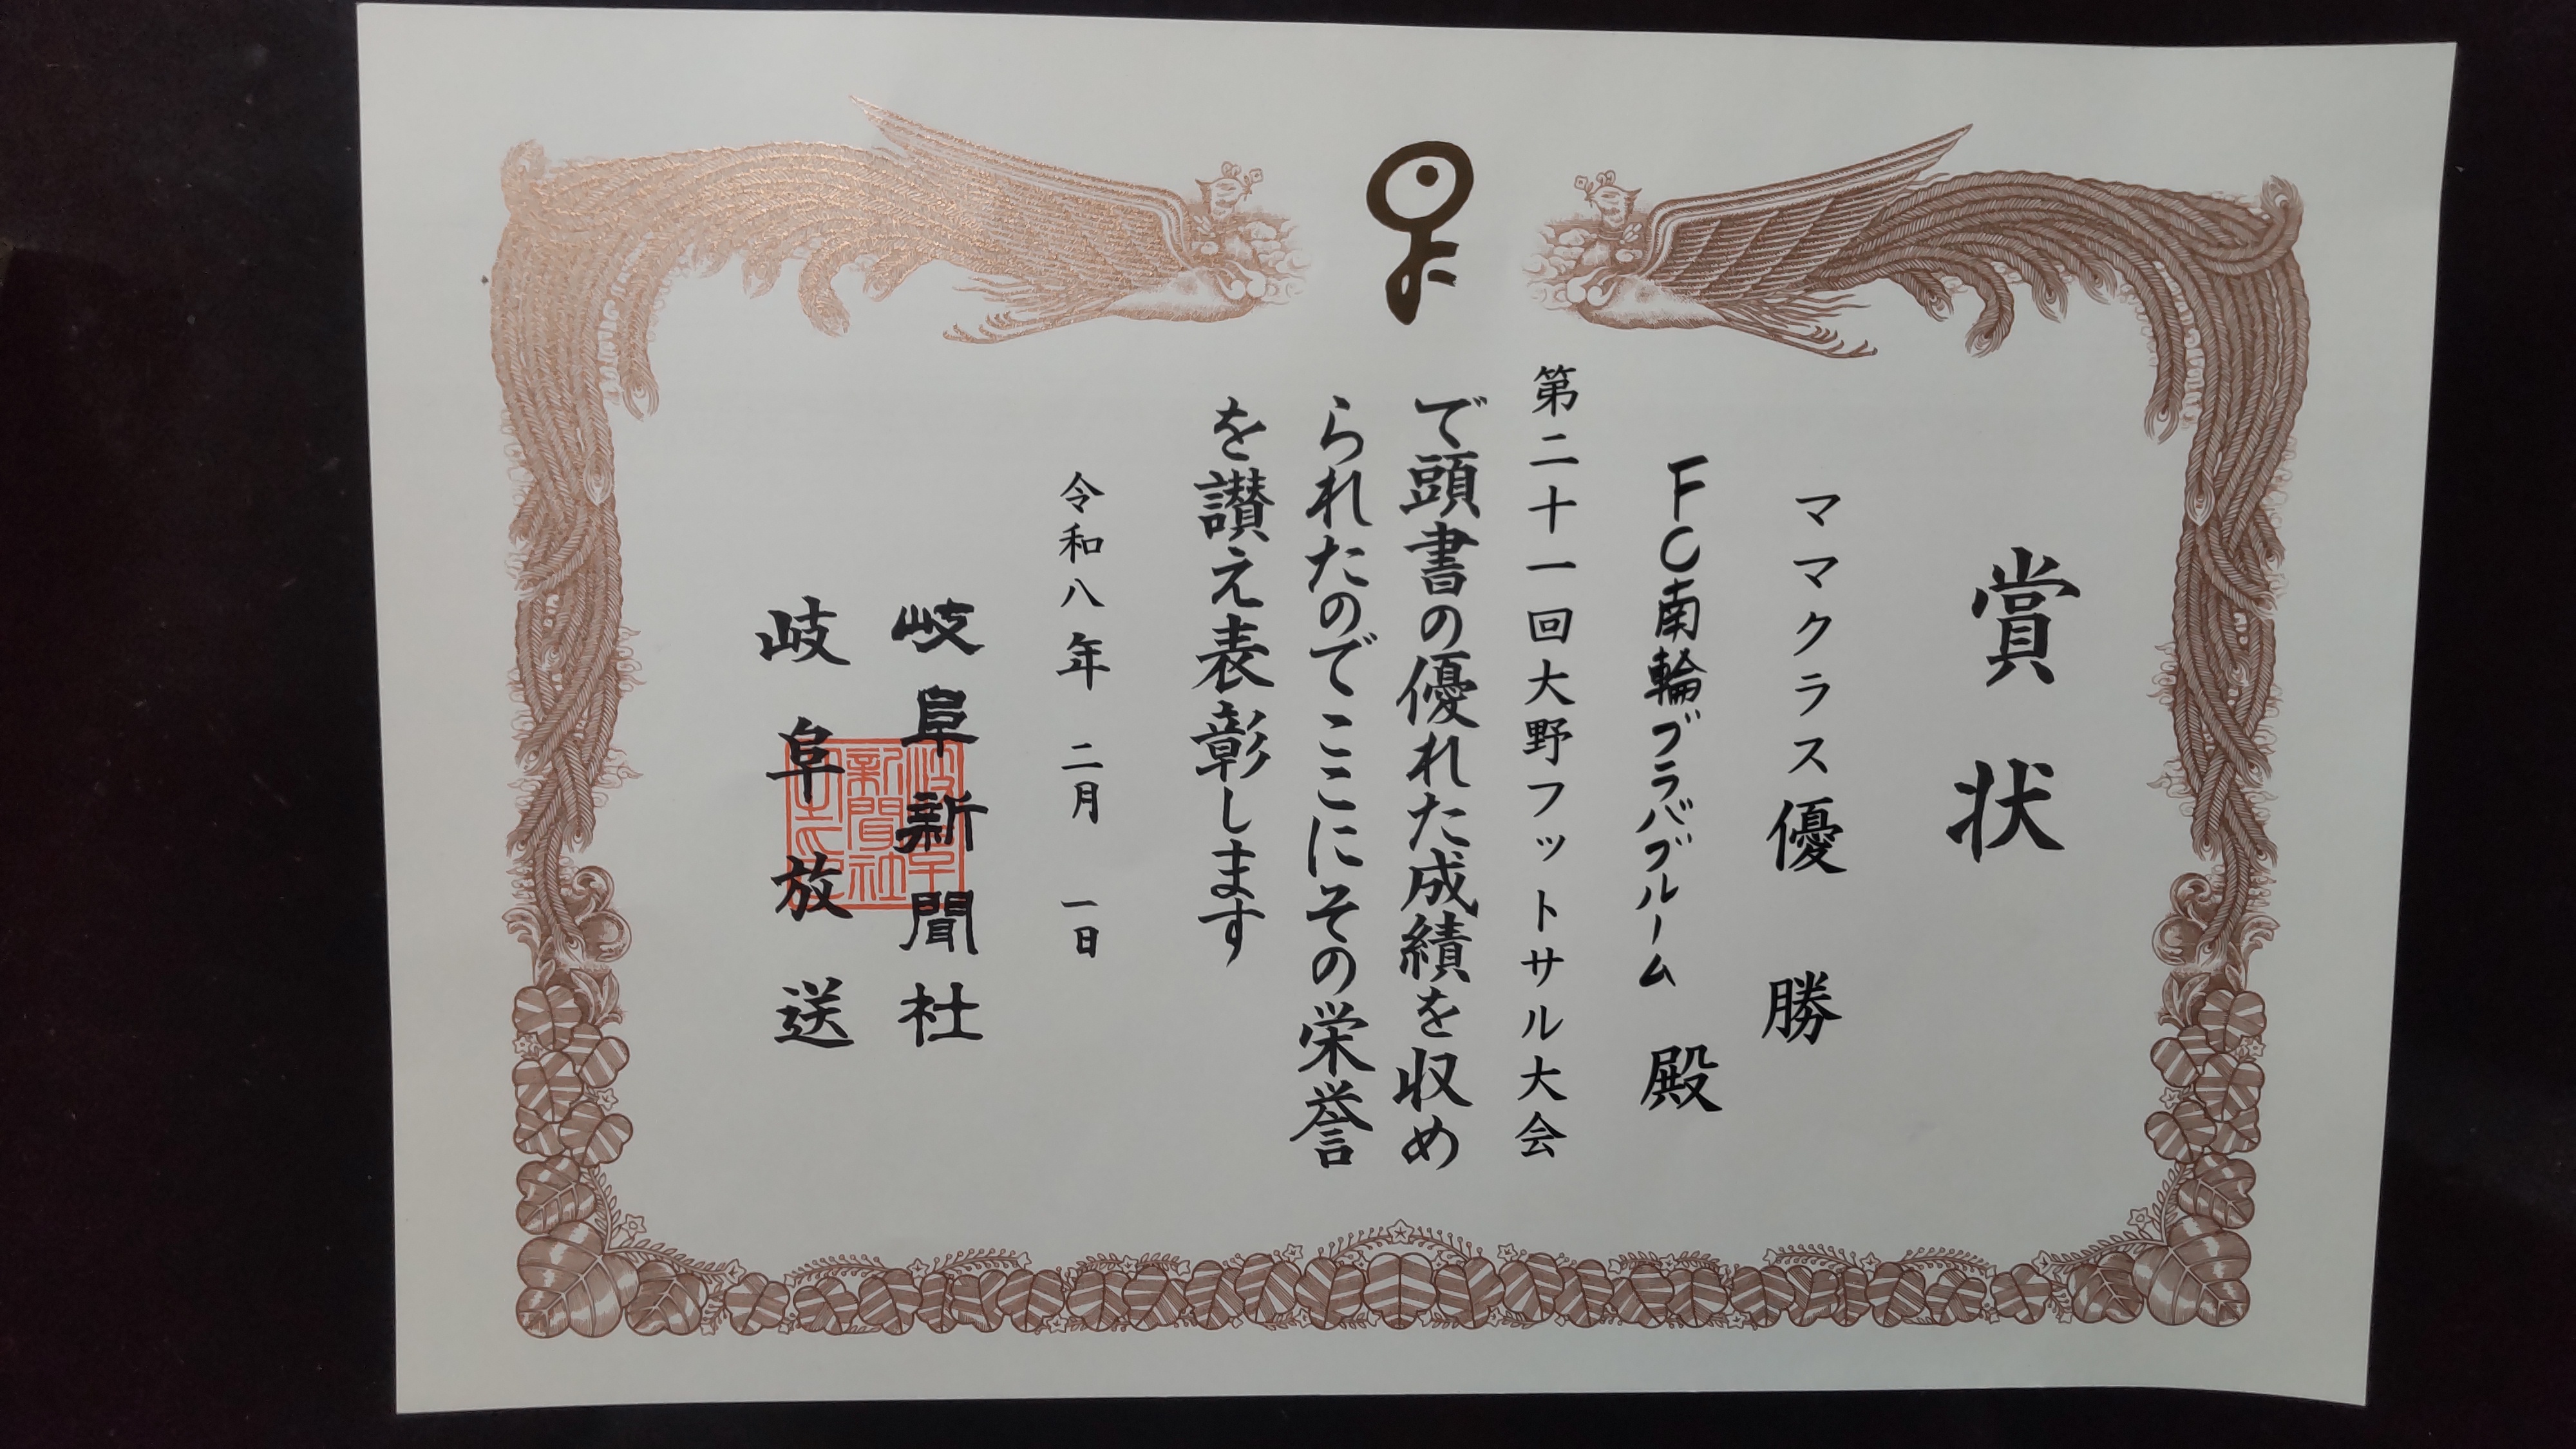 賞状
ママクラス優勝
FC南輪ブラバブルーム 殿
第二十一回大野フットサル大会
で頭書の優れた成績を収め
られたのでここにその栄誉
を讃え表彰します
令和八年 二月 一日
岐阜新聞社
岐阜放送